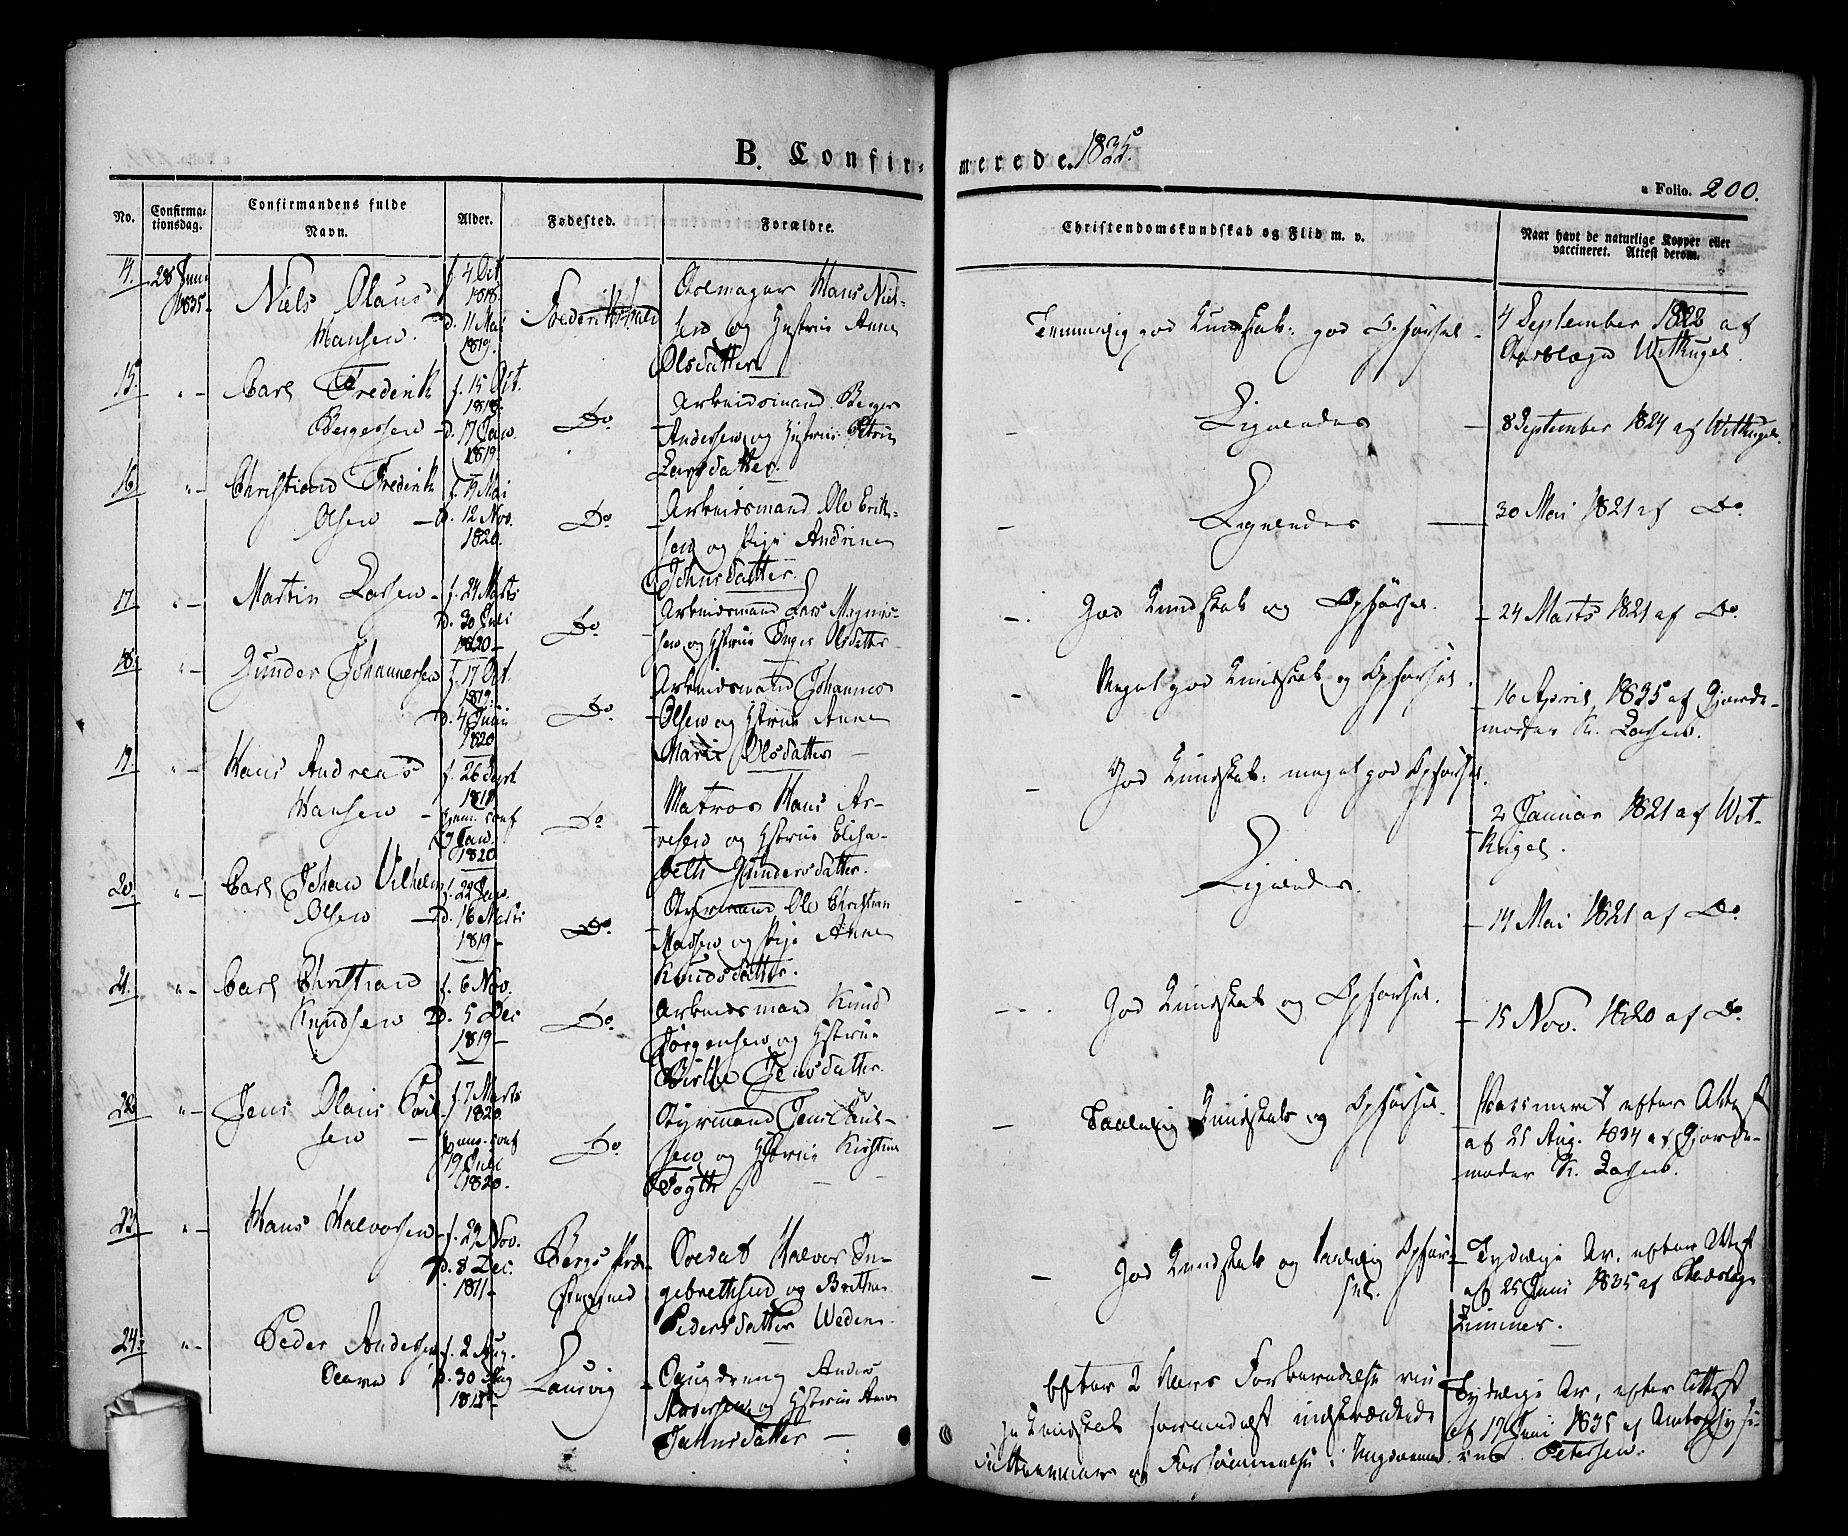 B. Confir-
merede. 1835.
a Folio. 200.
No.
Confirma-
tionsdag.
Confirmandens fulde
Navn.
Alder.
Fødested.
Forældre.
Christendomskundskab og Flid m. v.
Naar havt de naturlige Kopper eller
vaccineret. Attest derom.
14. 28 Juni
1835
Niels Olaus
Hansen.
f. 4 Oct
1818.
d. 11 Mai
1819.
Frederikshald
Hans Niel-
sen og Hustrue Anne
Olsdatter
Temmelig god Kundskab: god Opførsel.
4 September 1822 af
Wethugel.
15. " Carl Frederik
Bergersen
f. 15 Oct.
1818.
d. 17 Jan.
1819.
Do
Arbeidsmand Berger
Andersen og Hustrue
Larsdatter.
Lignendes
8 September 1824 af Withugel.
16. " Christian Frederik
Olsen
f. 19 Mai
D. 12 Nov.
1820.
Do
Arbeidsmand Ole
sen og Pige Andrine
Johnsdatter.
Lignendes
30 Mai 1821 af Do
17. " Martin Larsen
f. 24 Marts
D. 30 Juli
1820
Do
Arbeidsmand Lars Magnus-
sen og Hstrue Inger Olsdatter
God Kundskab og Opførsel.
24 Marts 1821 af Do
18. " Gunder Johannesen
f. 17 Oct
1819.
D. 4 Juni
1820
Do
Arbeidsmand Johannes
Olsen og Hstrue Anne
Marie Olsdatter
Meget god Kundskab og Opførsel.
16 April 1835 af Gjorde-
moder K. Larsen.
19. " Hans Andreas
Hansen
f. 26 Sept
1819.
hjem. conf
9 Jan.
1820
Do
Matros Hans Ar-
nesen og Hstrue Elisa-
beth Gundersdatter.
God Kundskab: meget god Opførsel.
2 Januar 1821 af Wit-
kugel.
20. " Carl Johan Vilhelm
Olsen
f. 22 Jan.
D. 16 Marts
1819
Do
Styrmand Ole Christian
Madsen og Pige Anne
Knudsdatter.
Lignendes.
14 Mai 1821 af Do
21. " Carl Christian
Knudsen
f. 6 Nov.
D. 5 Dec
1819
Do
Arbeidsmand Knud
Jørgensen og Hstrue
Birthe Jensdatter.
God Kundskab og Opførsel.
15 Nov. 1820 af Do
22. " Jens Olaus Poul-
sen
f. 7 Marts
1820.
hjem. conf
19 Juli
1820.
Do
Styrmand Jens Poul-
sen og Hstrue Kirstine
Taalelig Kundskab og Opførsel.
Vaccineret efter Attest
af 25 Aug. 1834 af Gjorde-
moder K. Larsen.
23. " Hans Halvorsen
f. 29 Nov.
D. 8 Dec.
1811
Bergs Præ-
stegield
Soldat Halvor In-
gebrethsen og Birthe
Pedersdatter Weden
God Kundskab og taalelig Opfør-
sel.
Tydelige Ar, efter Attest
af 25 Juni 1835 af
Zimmer.
24. " Peder Andersen
f. 2 Aug.
D. 30 Aug
1815
Laurvig
Anders
Andersen og Hstrue Anne
Johnsdatter
Efter 2 Aars Forberedelse
Kundskab
og Forsømmelse i Ungdommen.
Tydelige Ar, efter Attest
af 17 Juni 1835 af
Petersen.